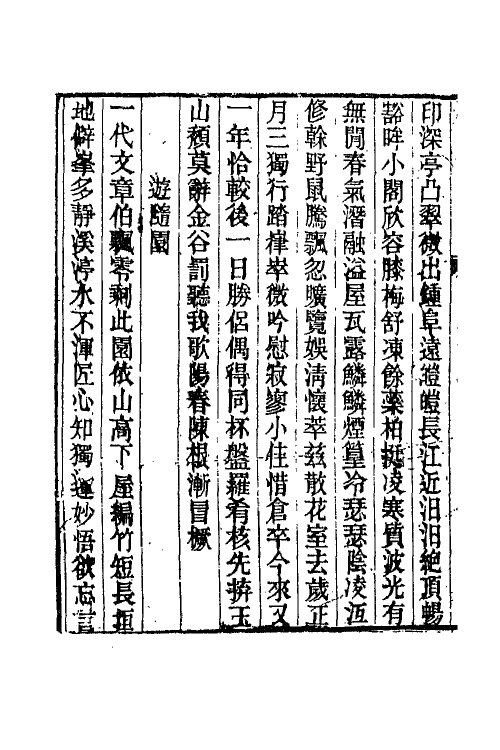 印深亭凸翠微出鍾阜遠皚皚長江近汨汨絶頂暢
豁眸小閣欣容膝梅舒凍餘蘂柏挺凌寒質波光有
無閒春氣潛融溢屋瓦露鱗鱗煙篁冷瑟瑟陰凌沍
修榦野鼠騰飄忽曠覽娛淸懷萃兹散花室去歲正
月三獨行踏嵂崒微吟慰寂寥小住惜倉卒今來又
一年恰較後一日勝侶偶得同杯盤羅肴核先拚玉
山頽莫辭金谷罰聽我歌陽春陳根漸冒橛
遊隨園
一代文章伯飄零剩此園依山高下屋編竹短長垣
地僻峯多靜溪渟水不渾匠心知獨運妙悟欲忘言